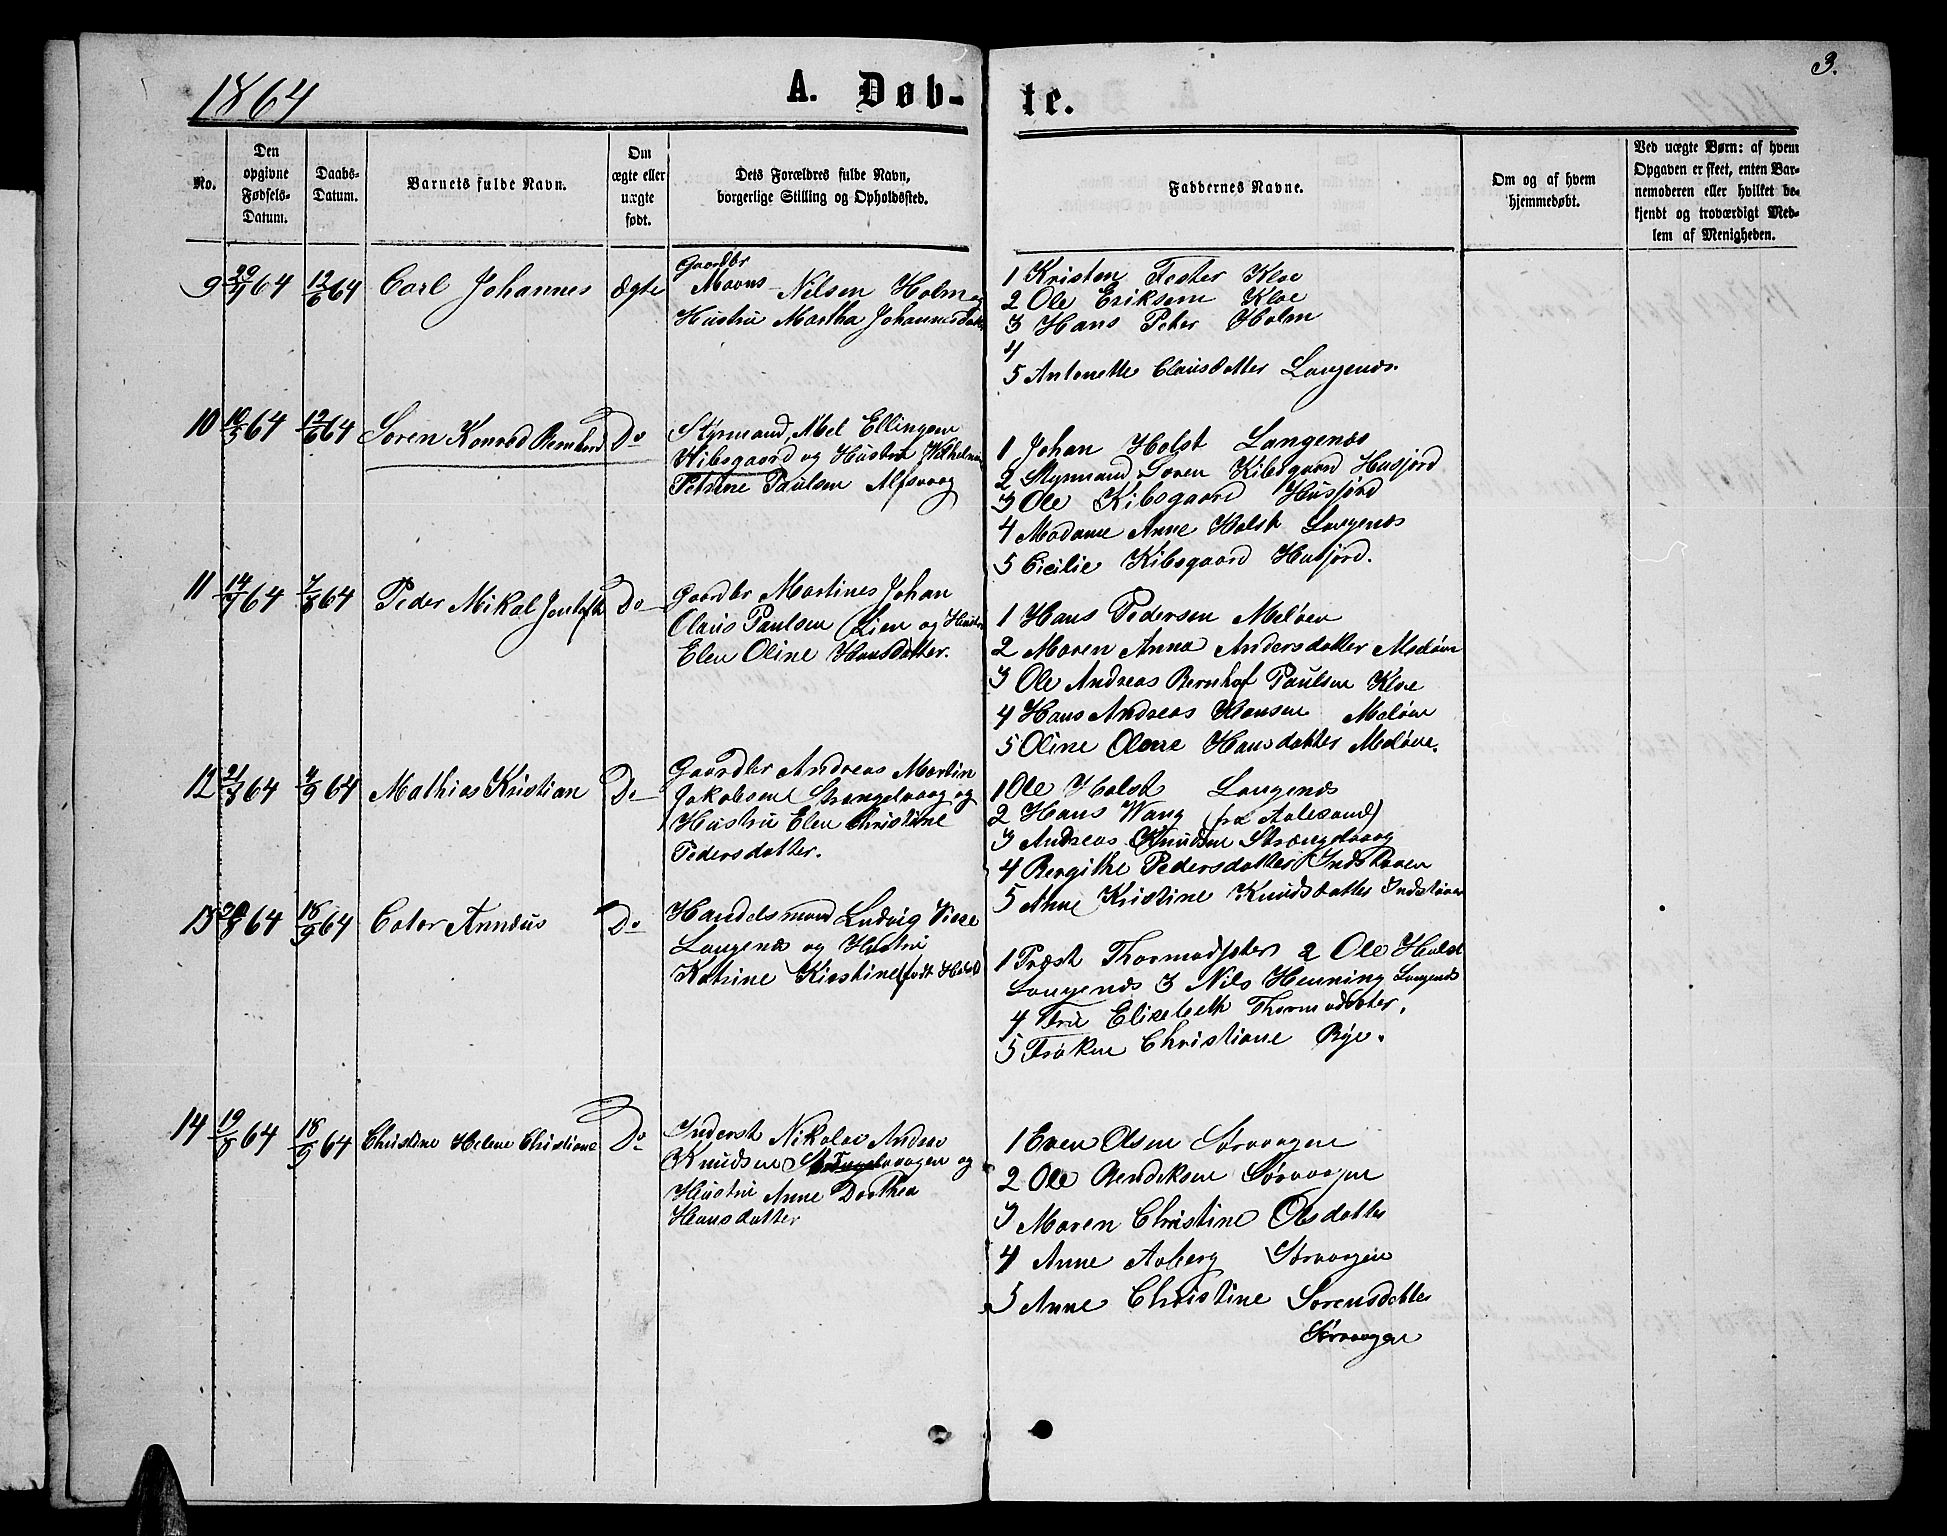 1864 A. Døb- te. 3.
No.
Den opgivne Fødsels-Datum.
Daabs-Datum.
Barnets fulde Navn.
Om ægte eller uægte født.
Dets Forældres fulde Navn, borgerlige Stilling og Opholdssted.
Faddernes Navne.
Om og af hvem hjemmedøbt.
Ved uægte Børn: af hvem Opgaven er skeet, enten Barnemoderen eller hvilket bekjendt og troværdigt Medlem af Menigheden.
9 64 12/6 64 Carl Johannes ægte
Gaardbr
Moons Nilsen Holm og
Hustru Martha Johannesdatter
1 Kristen Fester Kloe
2 Ole Eriksen Kloe
3 Hans Peter Holm
4
5 Antonette Clausdatter Langenæs.
10 10/5 64 12/6 64 Soren Konrad Bernhard Do
Styrmand, Mel Ellingsen
Kibsgaard og Hustru Wilhelmine
Petrine Paulsen Alfsvaag
1 Johan Holst Langenæs
2 Styrmand, Soren Kibsgaard Husjord
3 Ole Kibsgaard Husjord
4 Madame Anne Holst Langenæs
5 Cicilie Kibsgaard Husjord.
11 14/7 64 7/8 64 Peder Mikal Jentoft Do
Gaardbr Martines Johan
Claus Paulsen Lien og Hustru
Elen Oline Hansdatter.
1 Hans Pedersen Meløen
2 Maren Anna Andersdatter Meløen
3 Ole Andreas Bernhof Paulsen Kloe
4 Hans Andreas Hansen Meløen
5 Oline Olene Hansdatter Meløen.
12 64 4/9 64 Mathias Kristian Do
Gaardbr Andreas Martin
Jakobsen Strengelvaag og
Hustru Elen Christine
Pedersdatter.
1 Ole Holst Langenæs
2 Hans Wang (fra Aalesund)
3 Andreas Knudsen Strengelvaag
4 Bergithe Pedersdatter Indstøven
5 Anne Kristine Knudsdatter Indstøven
13 64 18/9 64 Peter Annæus Do
Handelsmand Ludvig
Langenæs og Hustru
Katrine Kirstine født Holst
1 Præst Thormodsæter 2 Ole Holst
Langenæs 3 Nils Henning Langenæs
4 Fru Elisebeth Thormodsæter.
5 Frøken Christiane Rye.
14 19/8 64 18/9 64 Christine Helene Christiane Do
Inderst Nikolai Andreas
Knudsen Strengelvaagen og
Hustru Anne Dorthea
Hansdatter
1 Even Olsen Sørvaagen
2 Ole Bendiksen Sørvaagen
3 Maren Christine Olsdatter
4 Anne Aaberg Sørvaagen
5 Anne Christine Sorensdatter
Sørvaagen